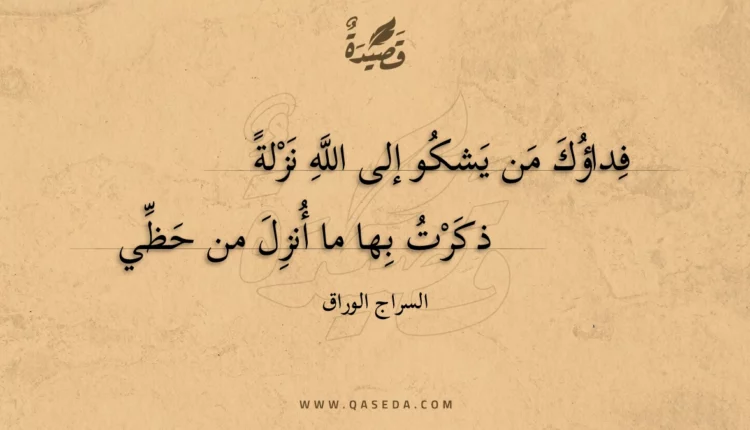 قَصِيْدَةٌ
فِداؤُكَ مَن يَشكُو إلى اللَّهِ نَزْلةً
ذكَرْتُ بِها ما أُنزِلَ من حَظِّي
السراج الوراق
WWW.QASEDA.COM